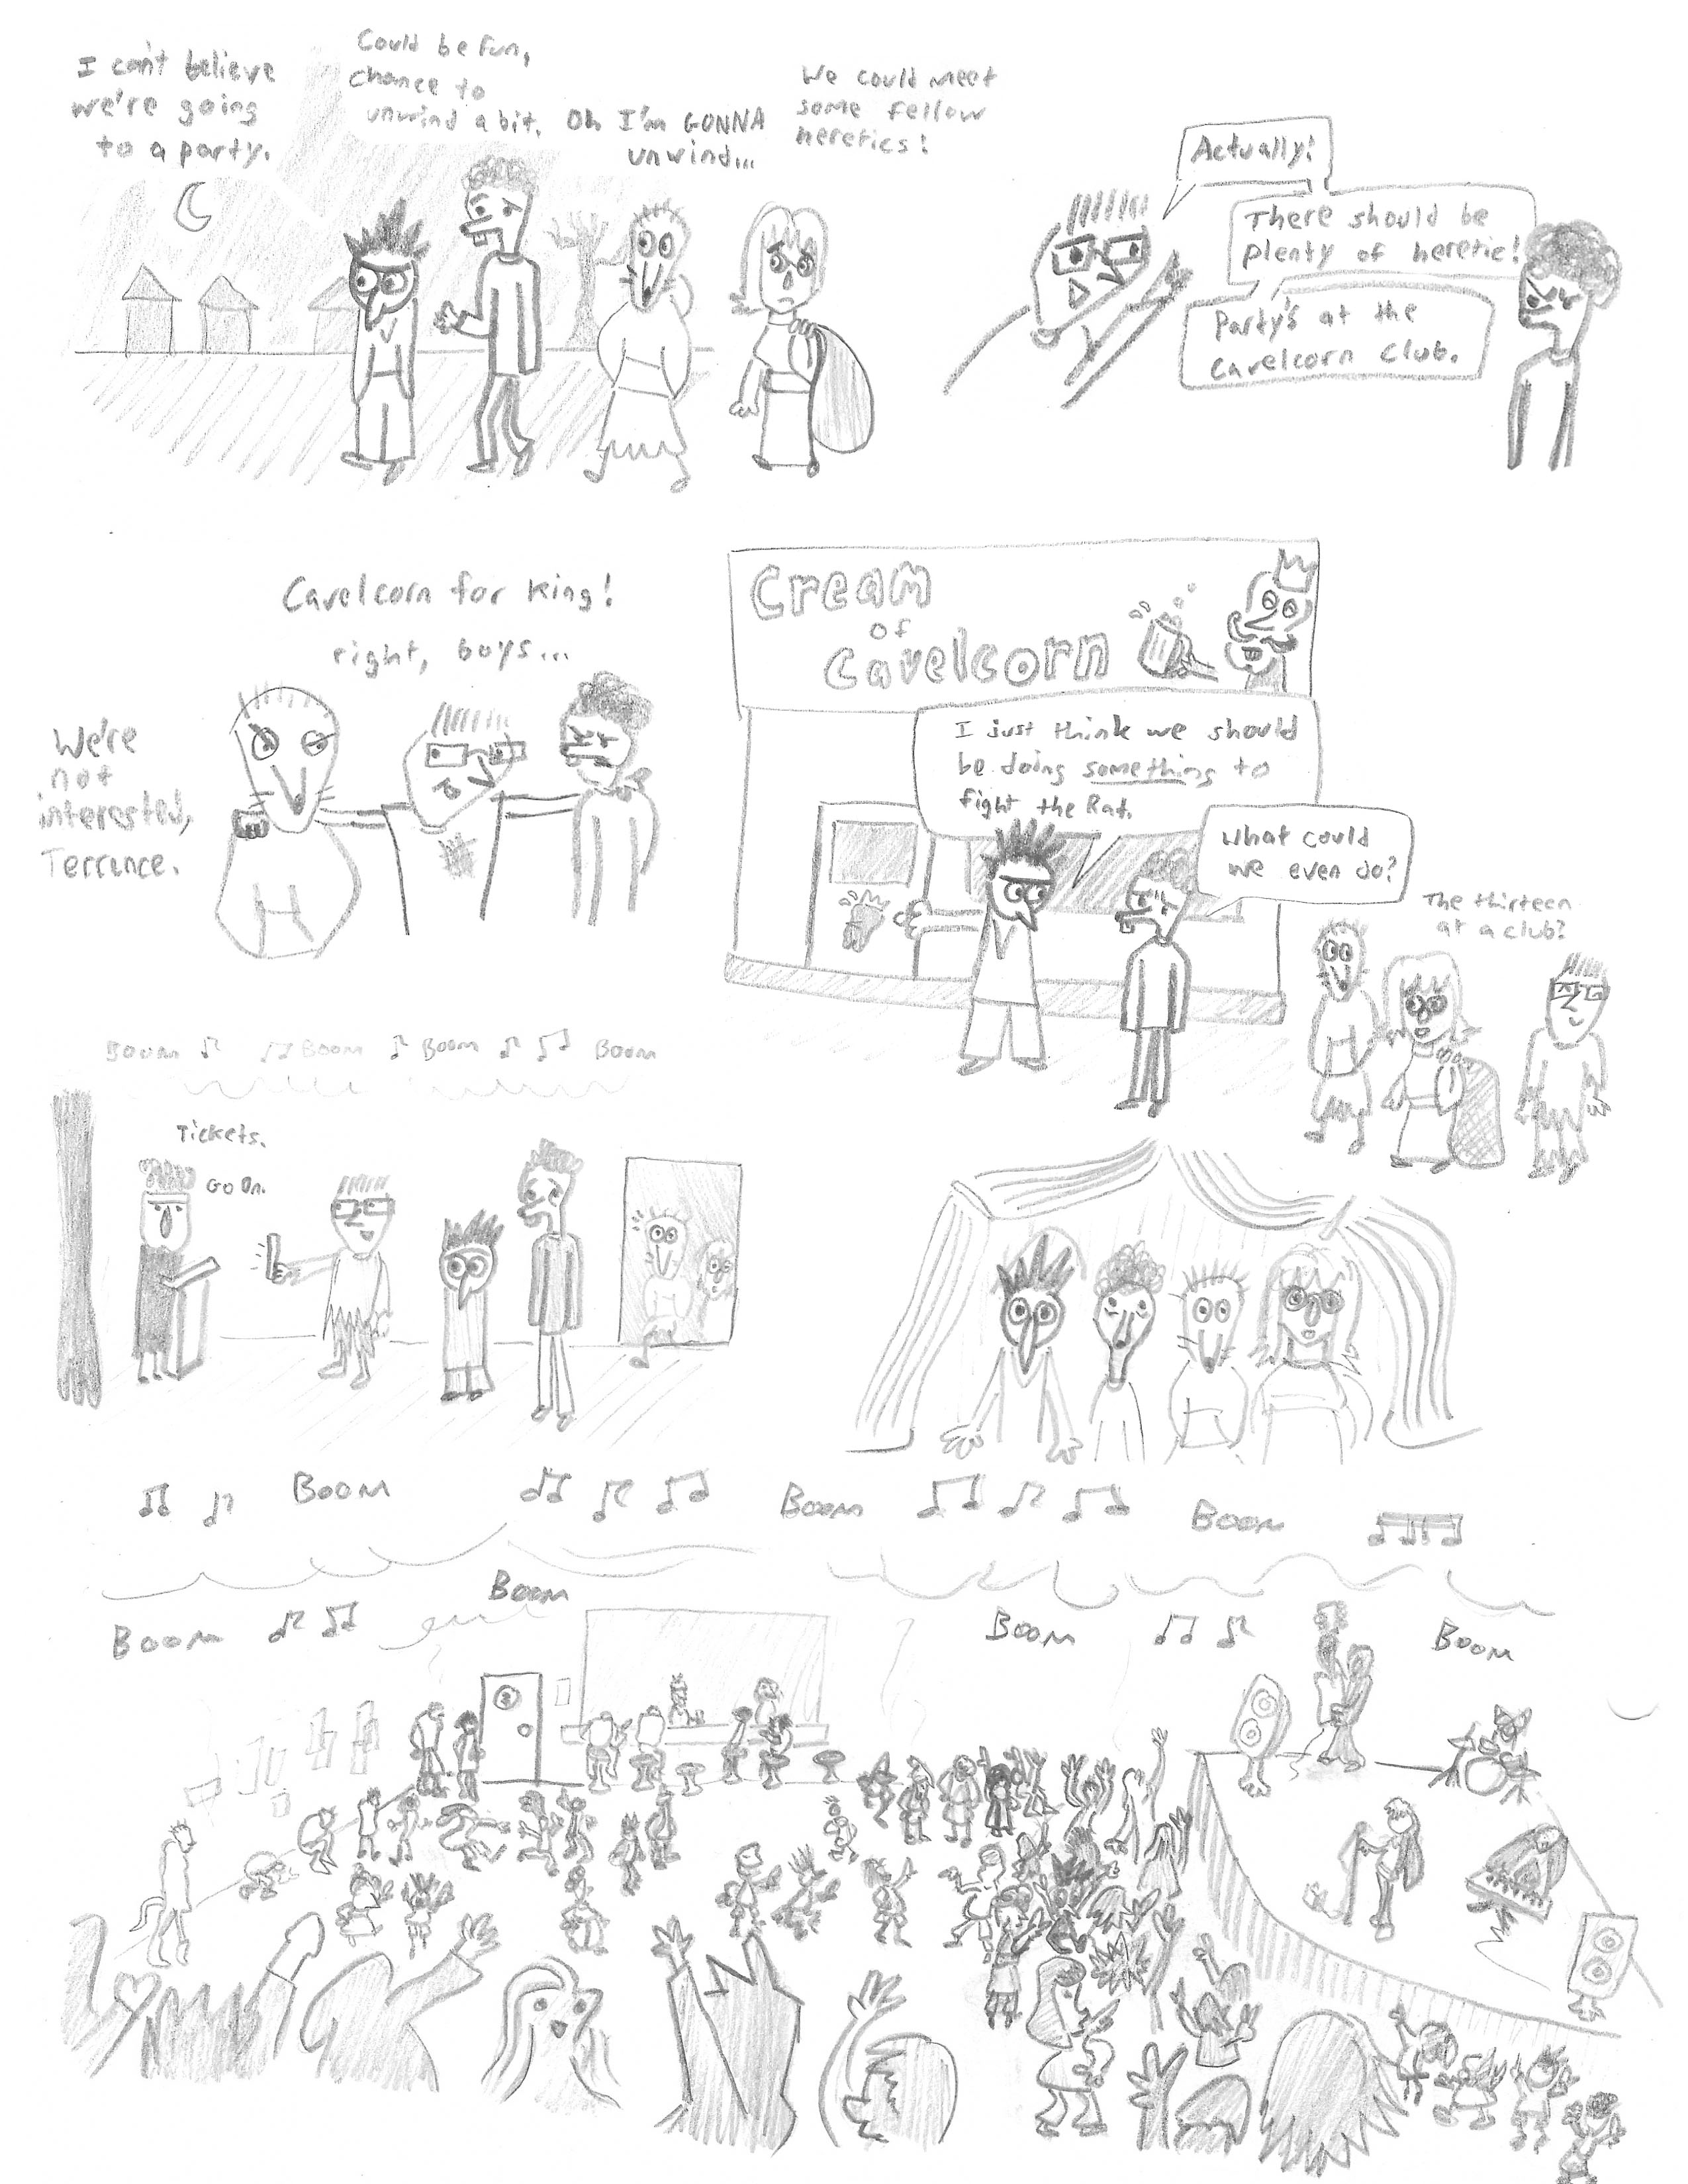 I can't believe
we're going
to a party.
Could be fun,
chance to
unwind a bit.
Oh I'm GONNA
unwind...
We could meet
some fellow
heretics!
Actually!
There should be
plenty of heretic!
Party's at the
Cavelcorn Club.
Cavelcorn for King!
right, boys...
We're
not
interested,
Terrance.
Cream
of
Cavelcorn
I just think we should
be doing something to
fight the Rat.
What could
we even do?
The thirteen
at a club?
Boom Boom Boom Boom
Tickets.
Go On.
Boom Boom Boom
Boom
Boom Boom Boom